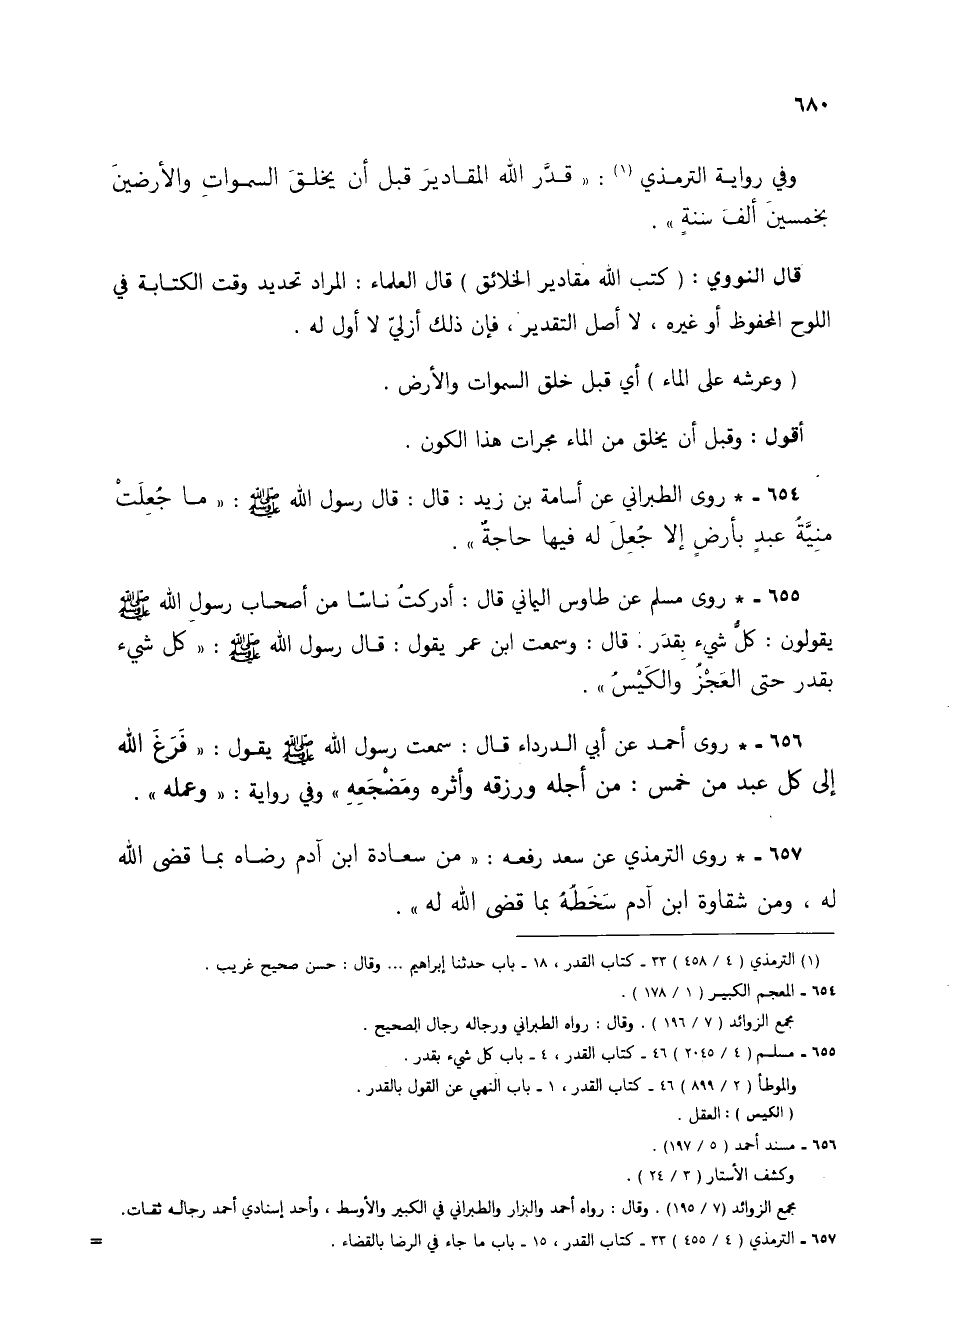 ٦٨٠
وفي رواية الترمذي (١) : « قدَّر الله المقاديرَ قبل أن يخلقَ السمواتِ والأرضينَ
بخمسينَ ألفَ سنةٍ » .
قال النووي : ( كتب الله مقادير الخلائق ) قال العلماء : المراد تحديد وقت الكتابة في
اللوح المحفوظ أو غيره ، لا أصل التقدير ، فإن ذلك أزليّ لا أول له .
( وعرشه على الماء ) أي قبل خلق السموات والأرض .
أقول : وقبل أن يخلق من الماء مجرات هذا الكون .
٦٥٤ - * روى الطبراني عن أسامة بن زيد : قال : قال رسول الله ﷺ : « ما جُعِلَتْ
منِيَّةُ عبدٍ بأرضٍ إلا جُعِلَ له فيها حاجةٌ » .
٦٥٥ - * روى مسلم عن طاوس اليماني قال : أدركتُ ناسًا من أصحاب رسولِ الله ﷺ
يقولون : كلُّ شيء بِقدَر . قال : وسمعت ابن عمر يقول : قال رسول الله ﷺ : « كل شيء
بقدر حتى العَجْزُ والكَيْسُ » .
٦٥٦ - * روى أحمد عن أبي الدرداء قال : سمعت رسول الله ﷺ يقول : « فَرَغَ الله
إلى كل عبد من خمس : من أجله ورزقه وأثره ومَضْجَعِهِ » وفي رواية : « وعمله » .
٦٥٧ - * روى الترمذي عن سعد رفعه : « من سعادة ابن آدم رضاه بما قضى الله
له ، ومن شقاوة ابن آدم سَخَطُهُ بما قضى الله له » .
(١) الترمذي ( ٤ / ٤٥٨ ) ٣٣ - كتاب القدر ، ١٨ - باب حدثنا إبراهيم ... وقال : حسن صحيح غريب .
٦٥٤ - المعجم الكبير ( ١ / ١٧٨ ) .
مجمع الزوائد ( ٧ / ١٩٦ ) . وقال : رواه الطبراني ورجاله رجال الصحيح .
٦٥٥ - مسلم ( ٤ / ٢٠٤٥ ) ٤٦ - كتاب القدر ، ٤ - باب كل شيء بقدر .
والموطأ ( ٢ / ٨٩٩ ) ٤٦ - كتاب القدر ، ١ - باب النهي عن القول بالقدر .
( الكيس ) : العقل .
٦٥٦ - مسند أحمد ( ٥ / ١٩٧) .
وكشف الأستار ( ٣ / ٢٤ ) .
مجمع الزوائد (٧ / ١٩٥) . وقال : رواه أحمد والبزار والطبراني في الكبير والأوسط ، وأحد إسنادي أحمد رجاله ثقات.
٦٥٧ - الترمذي ( ٤ / ٤٥٥ ) ٣٣ - كتاب القدر ، ١٥ - باب ما جاء في الرضا بالقضاء . =